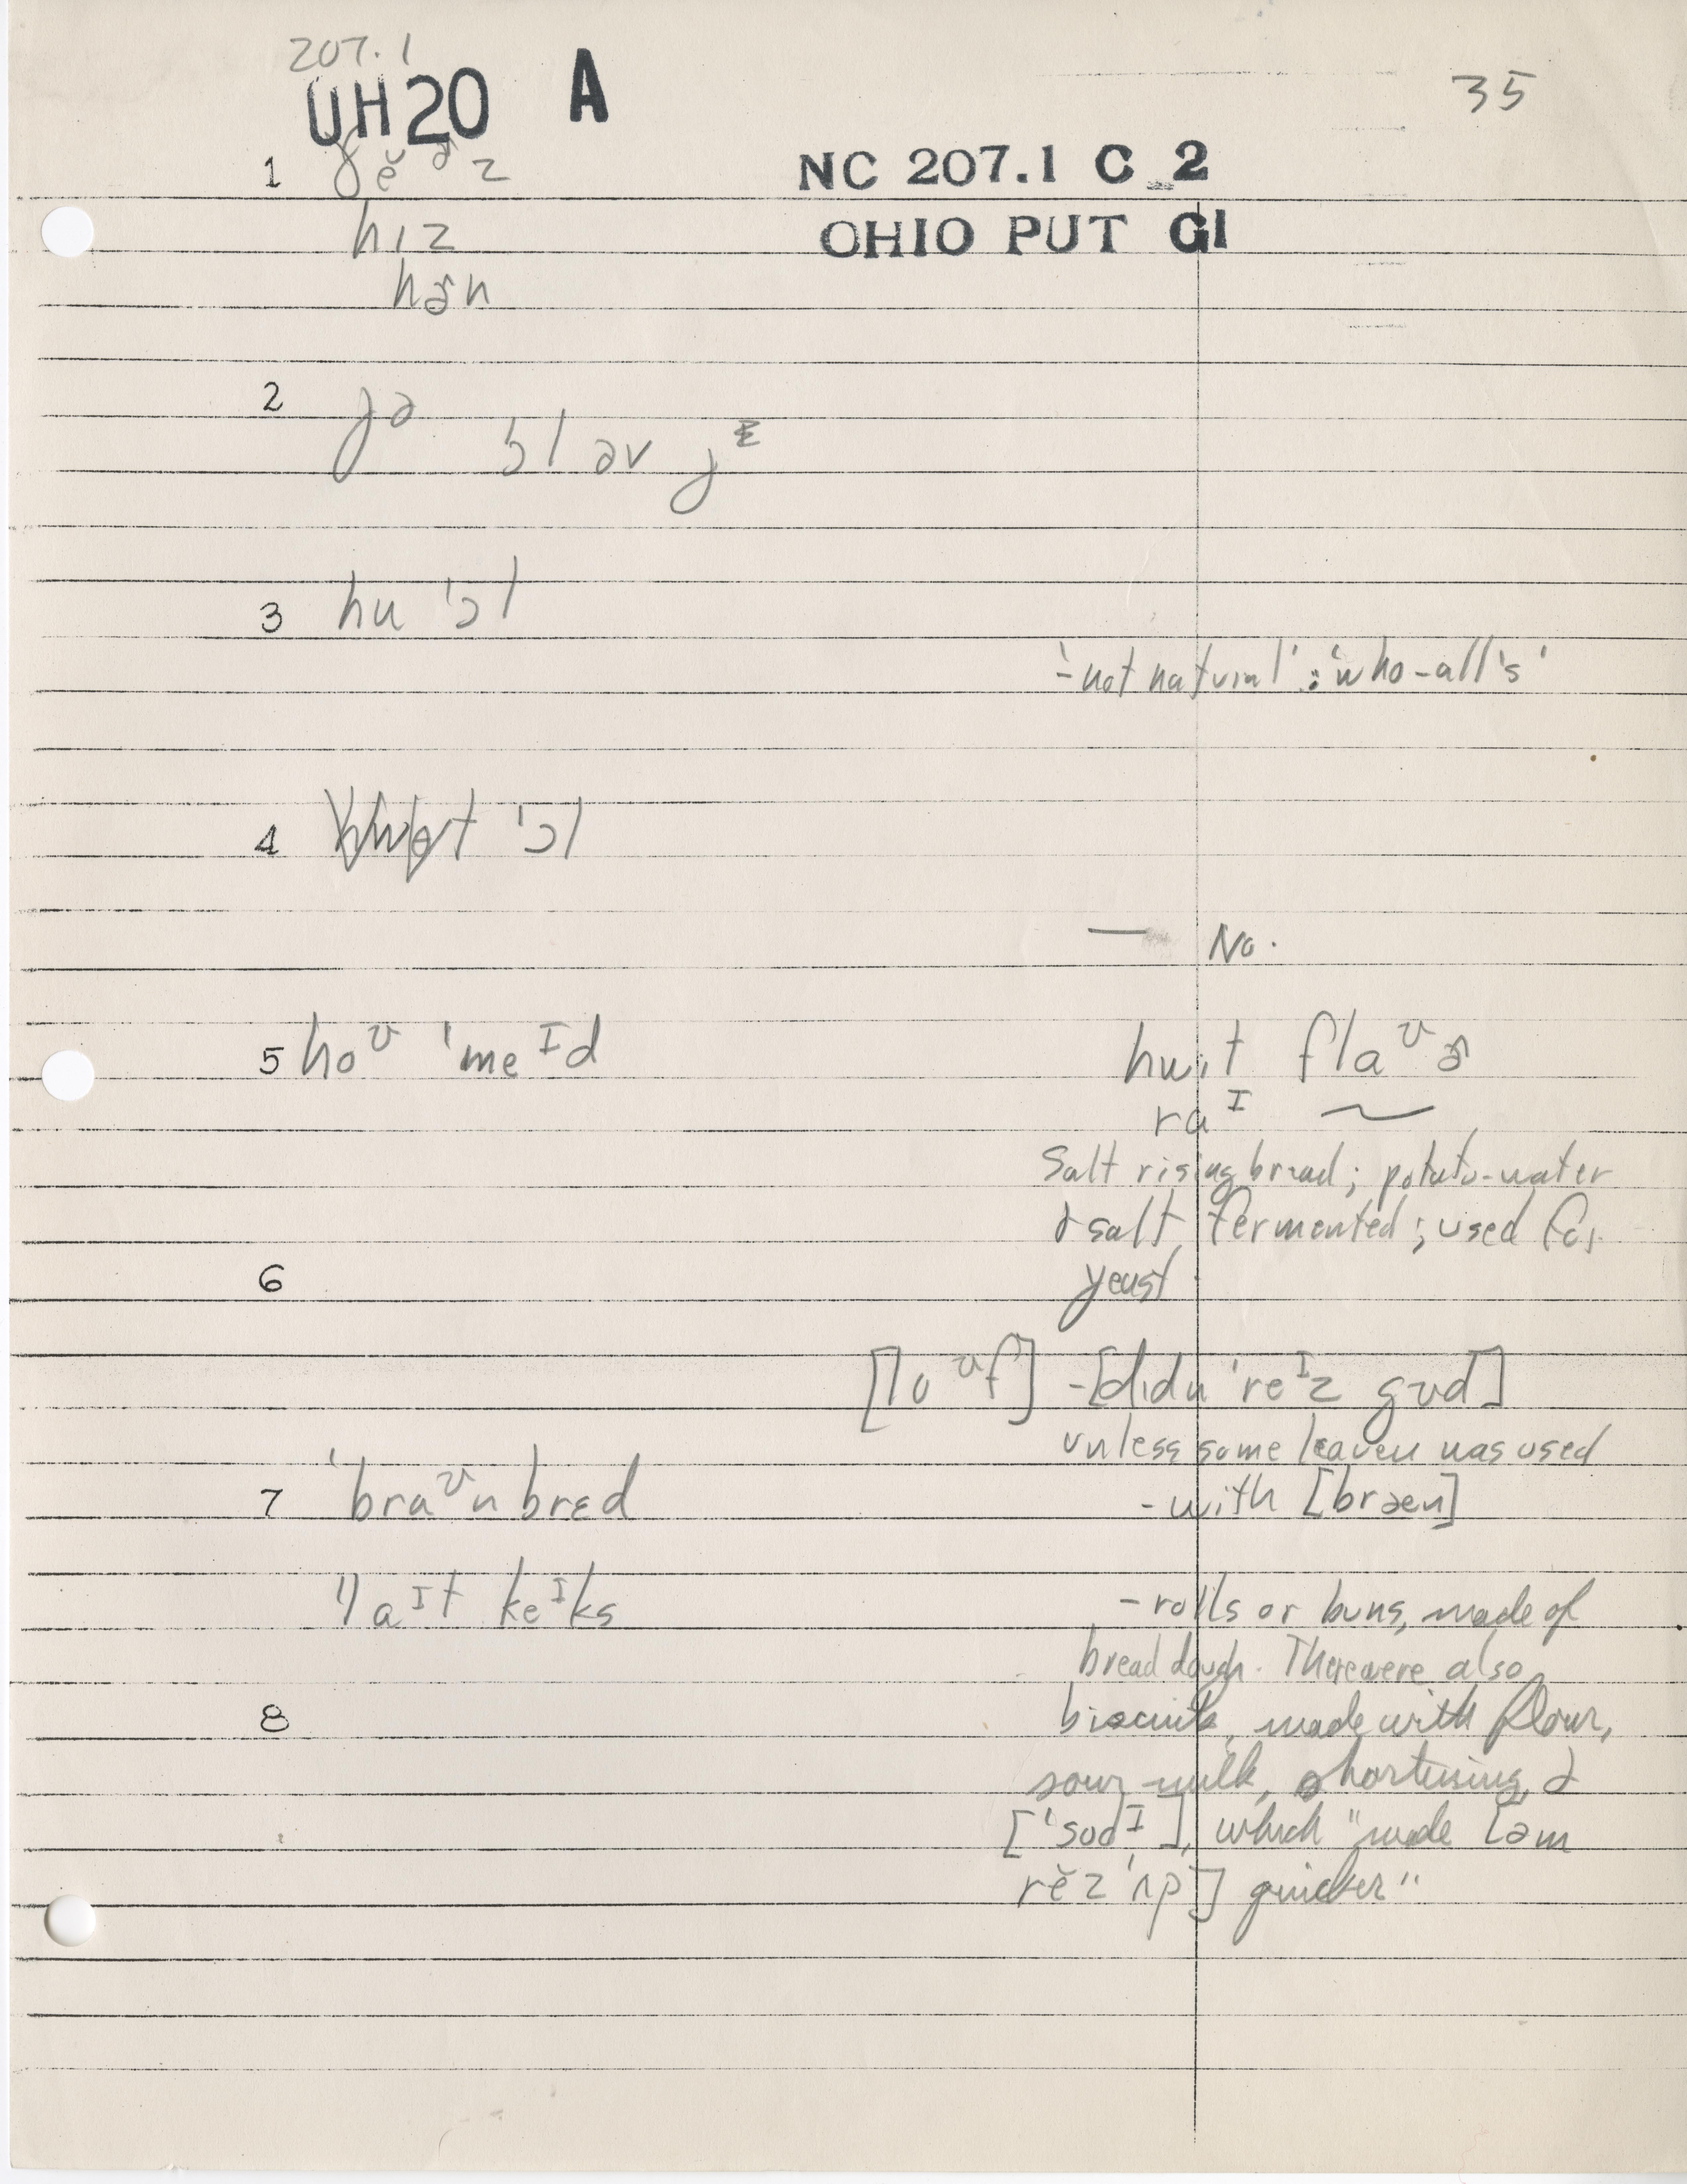 207.1
UH20 A
35
1 ðĕɚz
NC 207.1 C 2
hɪz
OHIO PUT G1
hɚn
2 jə
ˈɔl əv jᵻ
3 hu ˈɔl
'-not natural' : 'who-all's'
4 hwət ˈɔl
— No.
5 hoᶷ ˈmeᴵd
hwit flaᶷɚ
raᴵ ~
Salt rising bread; potato-water
& salt fermented; used for
6 yeast.
[loᶷf] -[dɪdn ˈreᴵz gʊd]
unless some leaven was used
7 ˈbraᶷn brɛd
-with [bræn]
ˈlaᴵt keᴵks
-rolls or buns, made of
bread dough. There were also
8 biscuits, made with flour,
sour milk, shortening, &
[ˈsodᴵ], which "made [əm
rĕz ˈʌp] quicker"